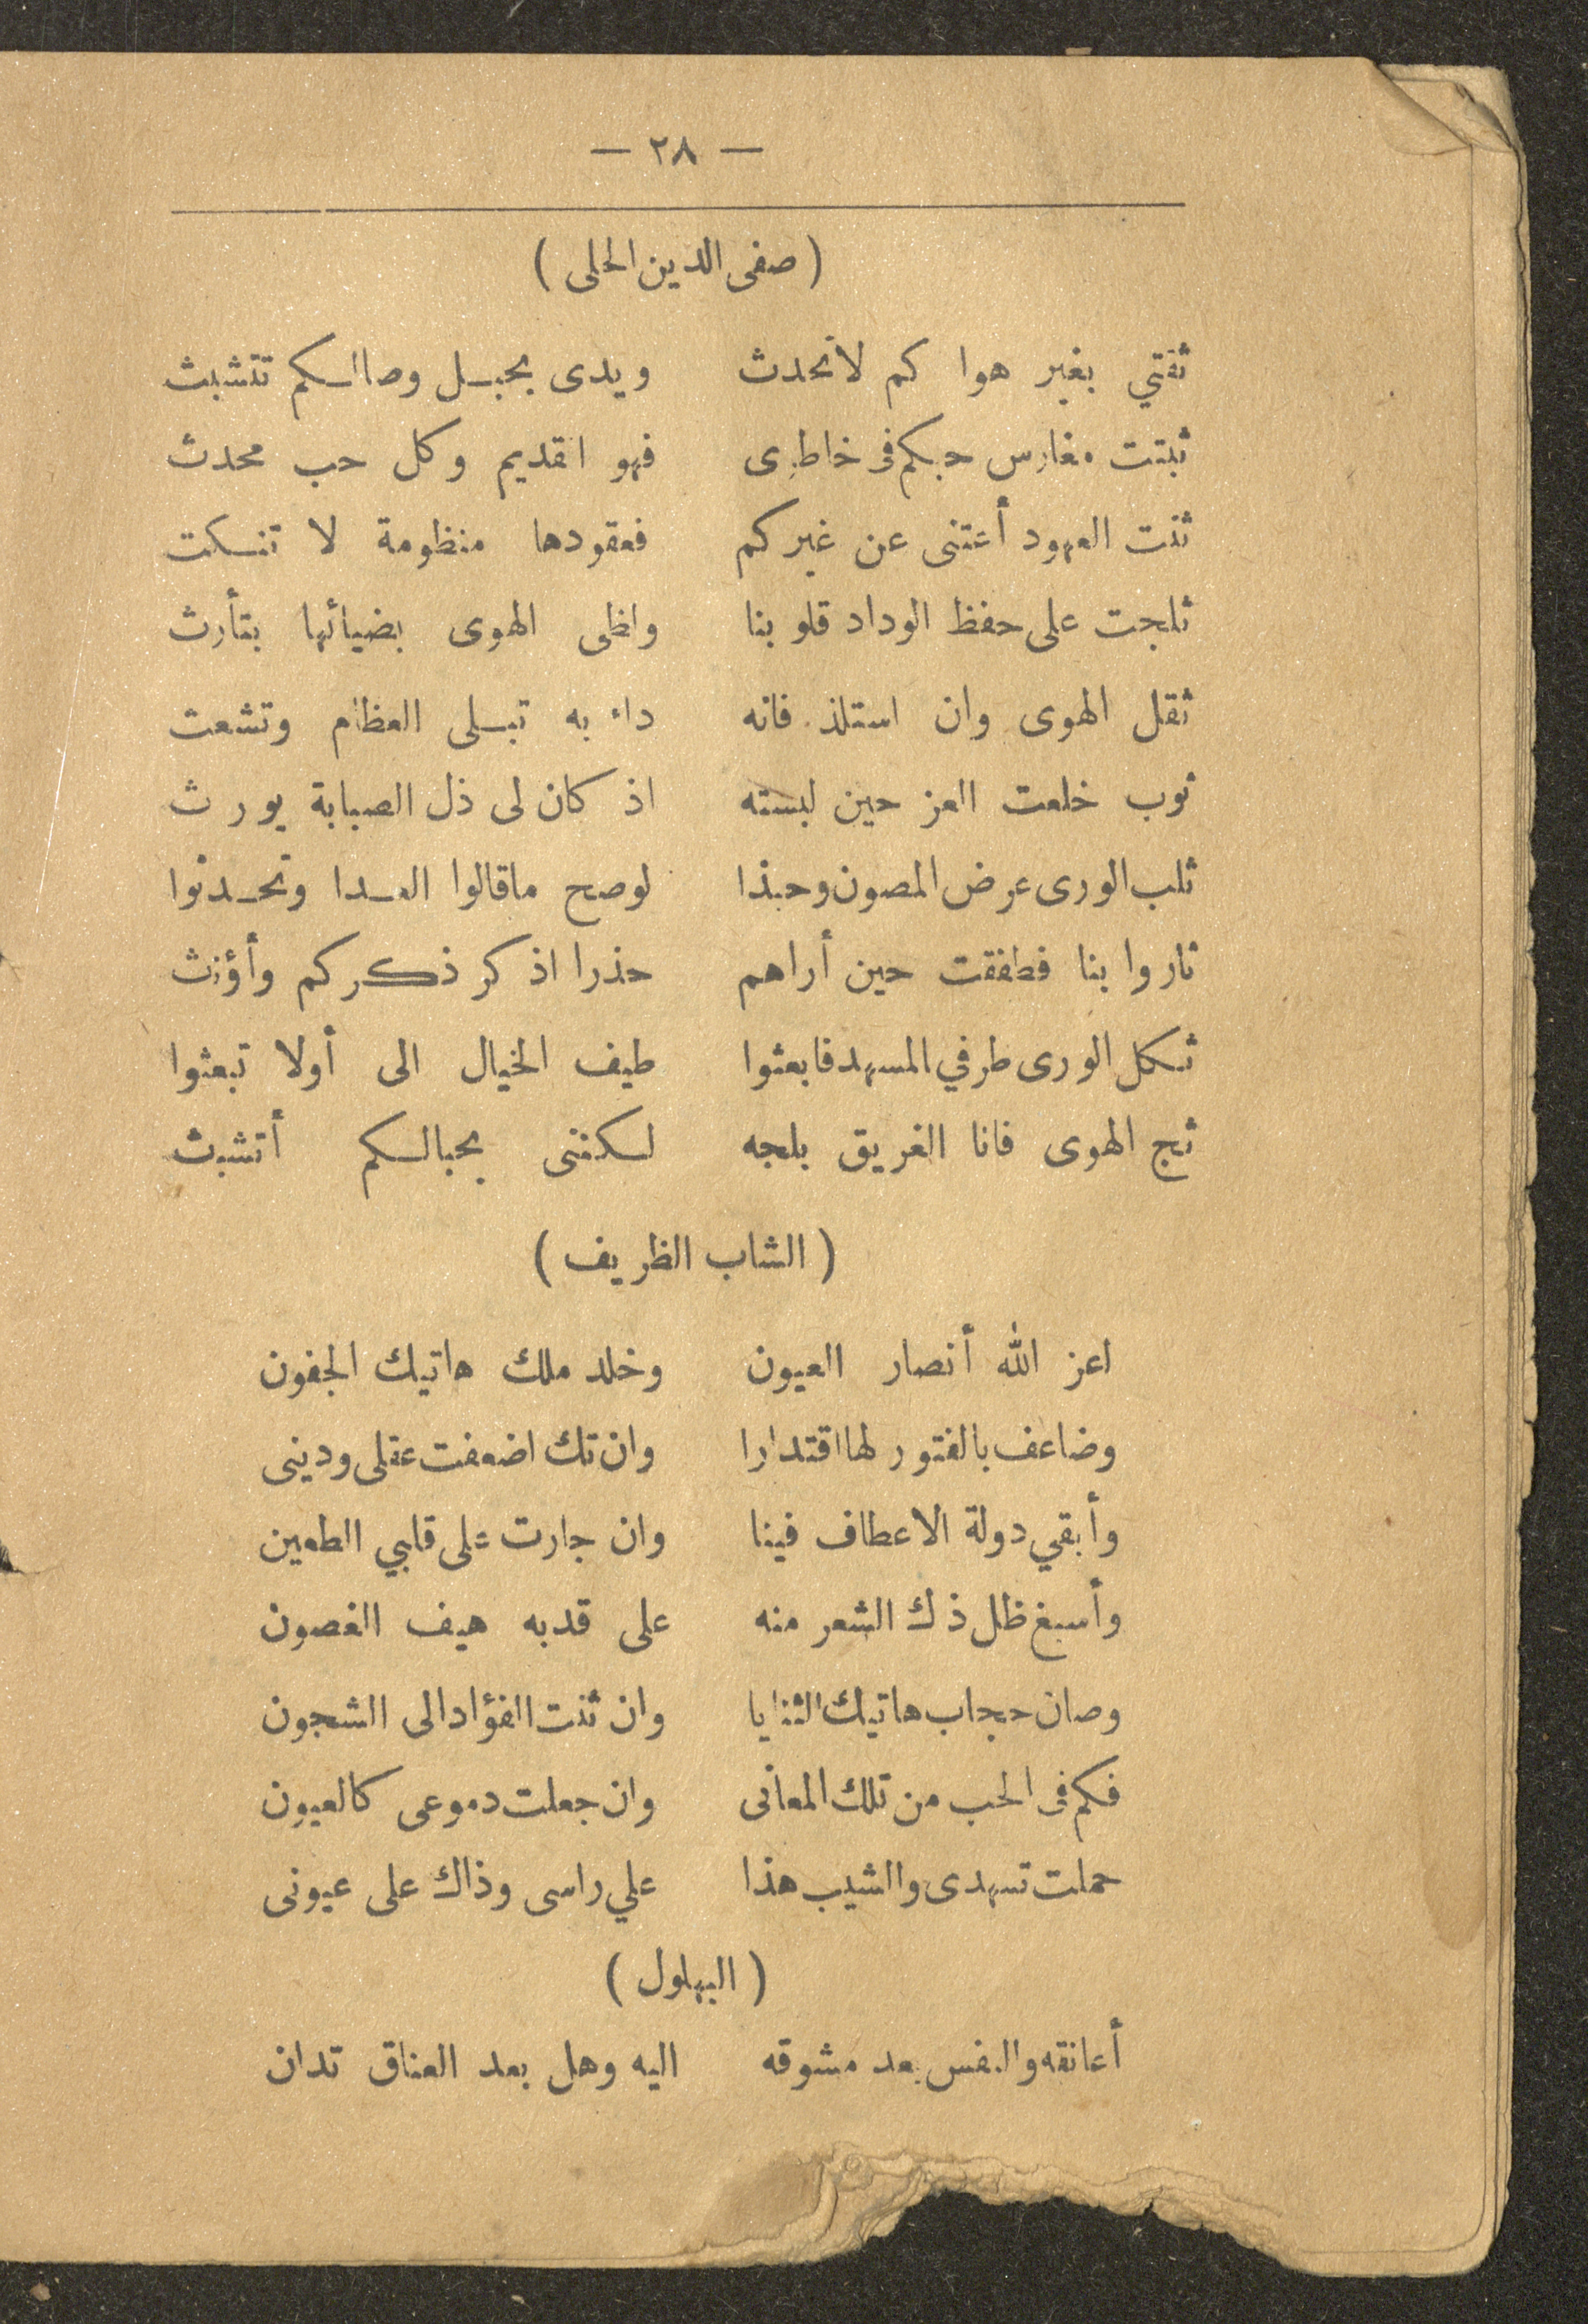 — ٢٨ —
( صفى الدين الحلى )
ثقتي بغير هوا كم لاتحدث ويدى بحبل وصالكم تتشبث
ثبتت مغارس حبكم فى خاطرى فهو القديم وكل حب محدث
ثنت العهود أعتنى عن غيركم فعقودها منظومة لا تنكت
ثلجت على حفظ الوداد قلوبنا ولظى الهوى بضيائها بتأرث
ثقل الهوى وان استلذ فانه داء به تبلى العظام وتشعت
ثوب خلعت العز حين لبسته اذ كان لى ذل الصبابة يورث
ثلب الورى عرض المصون وحبذا لوصح ماقالوا العدا وتحدثوا
ثاروا بنا فطفقت حين أراهم حذرا اذ كر ذكركم وأؤنث
ثكل الورى طرفي المسهد فابعثوا طيف الخيال الى أولا تبعثوا
ثج الهوى فانا الغريق بلجه لكننى بحبالكم أتشبث
( الشاب الظريف )
اعز الله أنصار العيون وخلد ملك هاتيك الجفون
وضاعف بالفتور لها اقتدارا وان تك اضعفت عقلى ودينى
وأبقي دولة الاعطاف فينا وان جارت على قلبي الطعين
وأسبغ ظل ذك الشعر منه على قدبه هيف الغصون
وصان حجاب هاتيك الثنايا وان ثنت الفؤاد الى الشجون
فكم فى الحب من تلك المعانى وان جعلت دموعى كالعيون
حملت تسهدى والشيب هذا علي راسى وذاك على عيونى
( البهلول )
أعانقه والنفس بعد مشوقه اليه وهل بعد العناق تدان